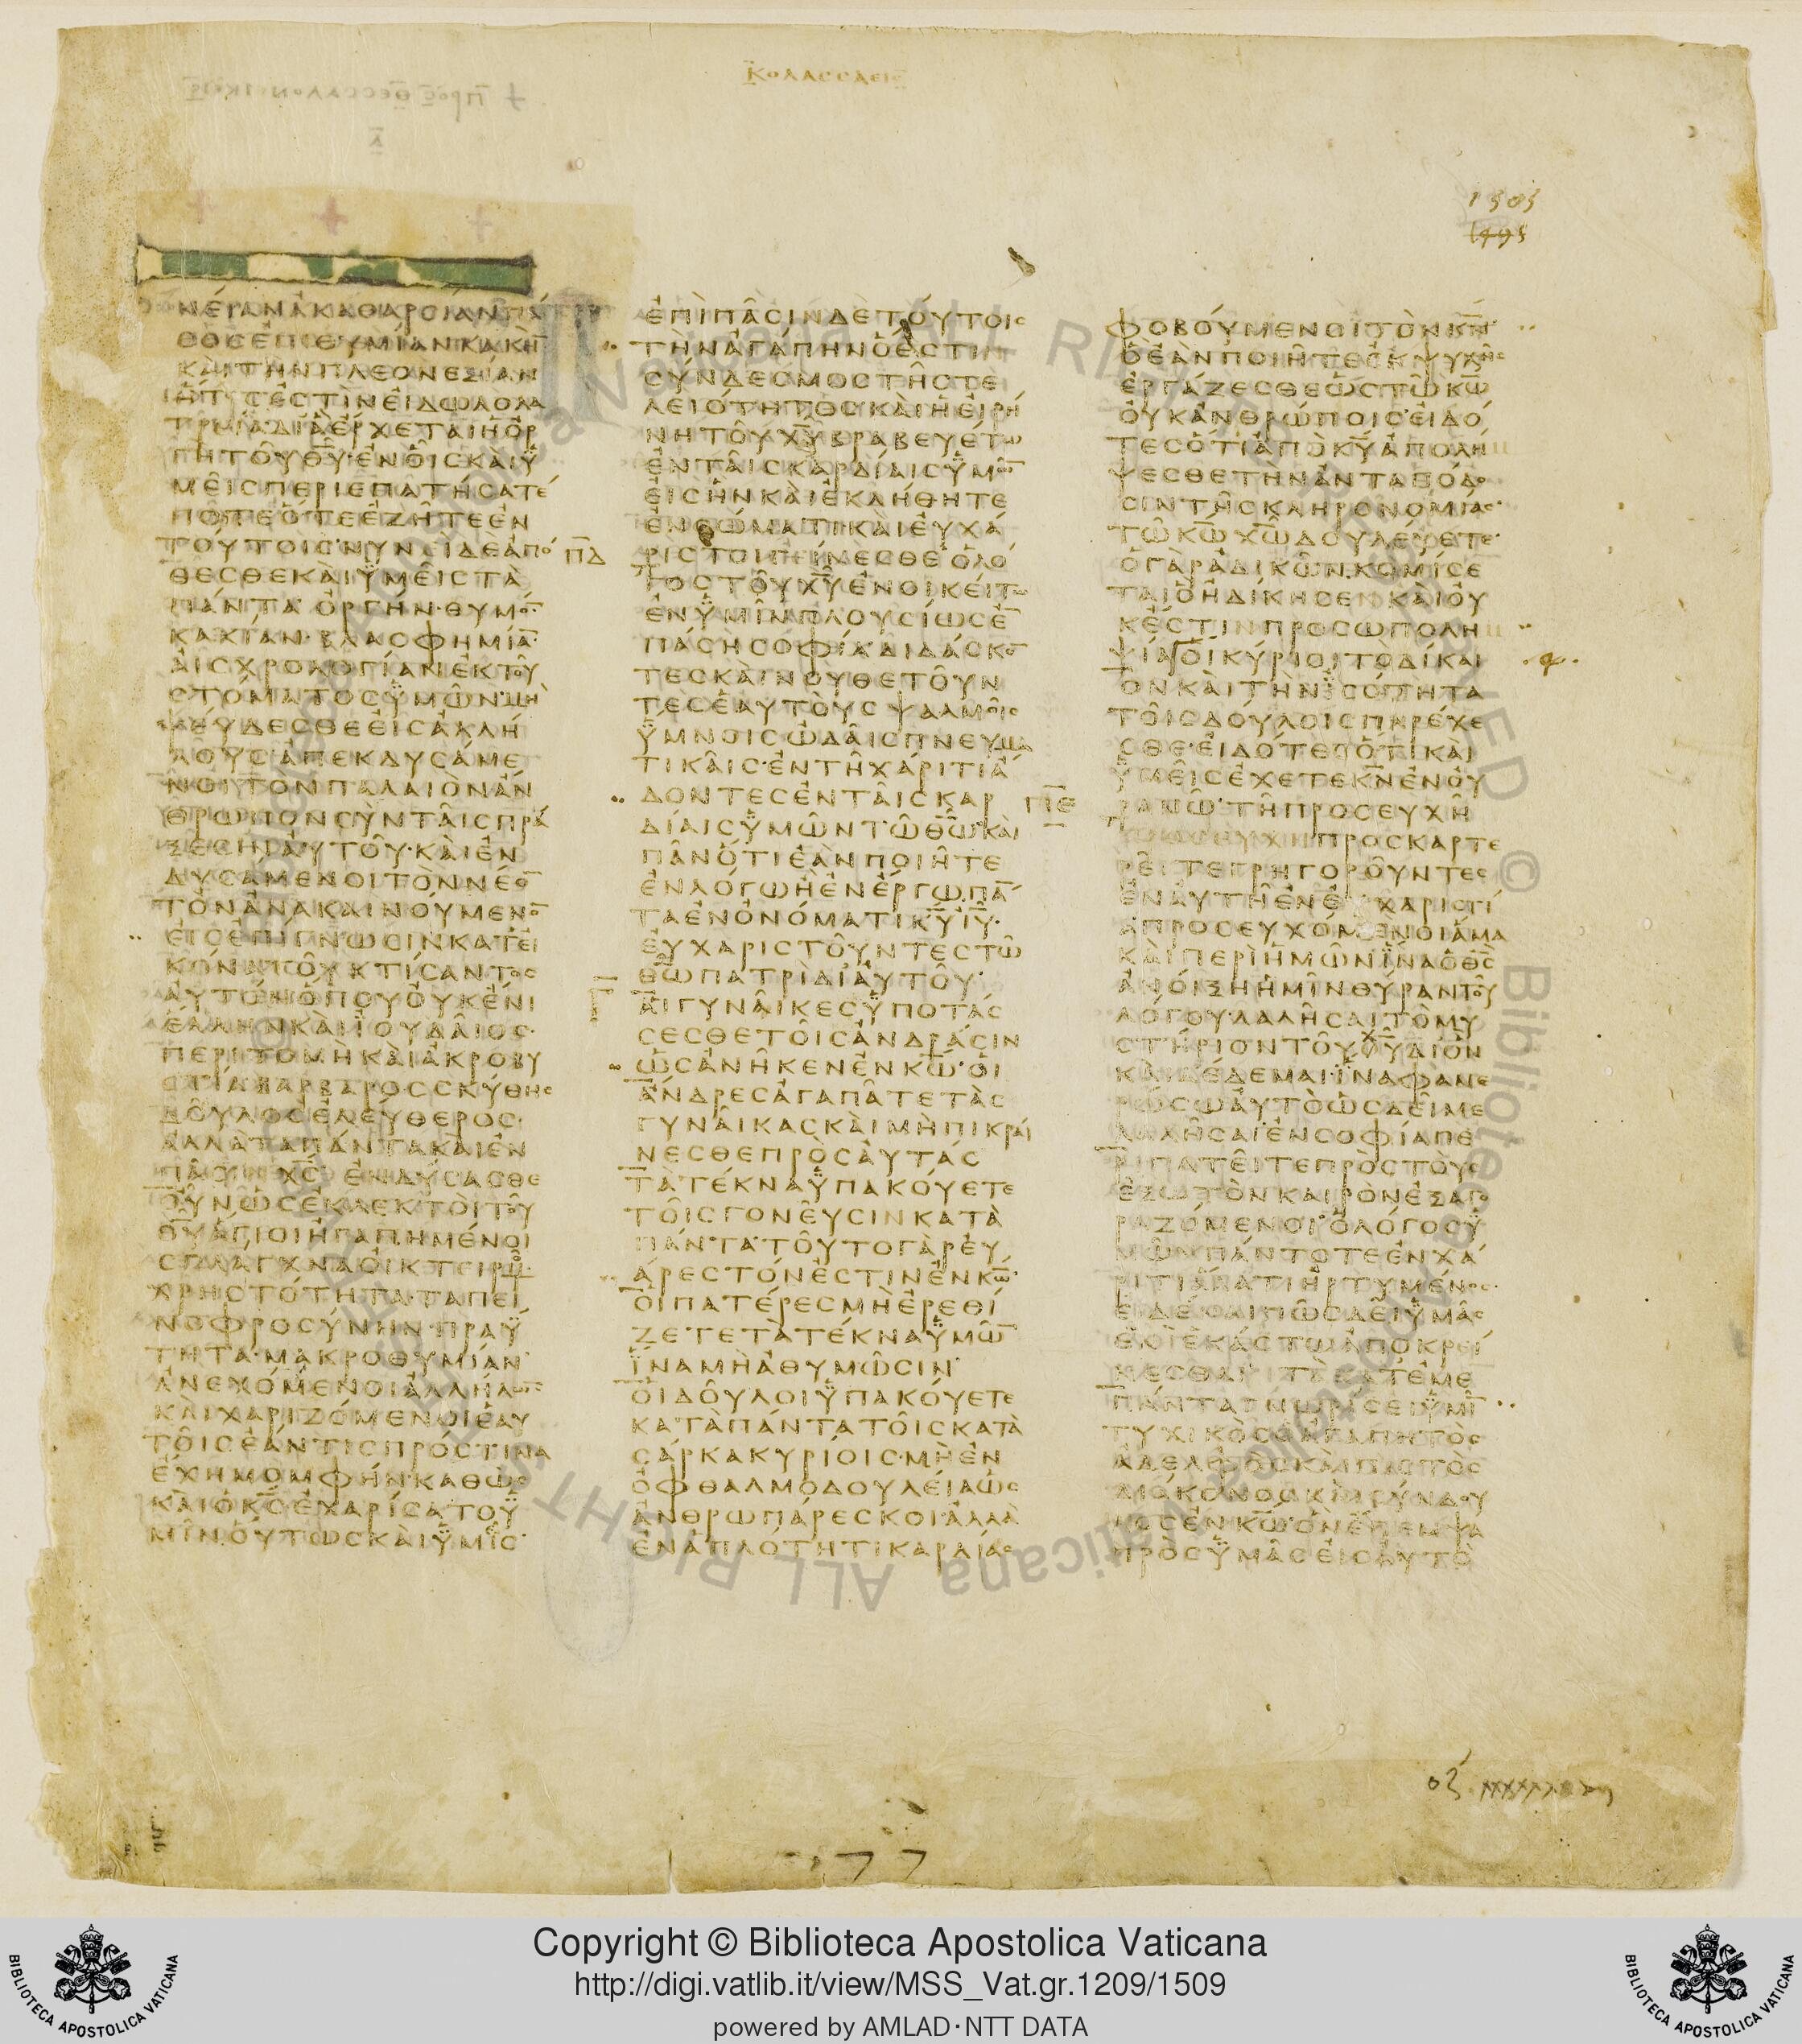 ΚΟΛΑϹϹΑΕΙϹ
1505
1495
ΝΕΙΑΝΑΚΑΘΑΡϹΙΑΝΠΑ
ΘΟϹΕΠΙΘΥΜΙΑΝΚΑΚΗ̅
ΚΑΙΤΗΝΠΛΕΟΝΕΞΙΑΝ
ΗΤΙϹΕϹΤΙΝΕΙΔΩΛΟΛΑ
ΤΡΙΑΔΙΑΕΡΧΕΤΑΙΗΟΡ
ΓΗΤΟΥΘ̅Υ̅·ΕΝΟΙϹΚΑΙΥ
ΜΕΙϹΠΕΡΙΕΠΑΤΗϹΑΤΕ
ΠΟΤΕΟΤΕΕΖΗΤΕΕΝ
ΤΟΥΤΟΙϹ·ΝΥΝΕΙΔΕΑΠΟ
ΠΔ
ΘΕϹΘΕΚΑΙΥΜΕΙϹΤΑ
ΠΑΝΤΑ·ΟΡΓΗΝ·ΘΥΜΟ̅
ΚΑΚΙΑΝ·ΒΛΑϹΦΗΜΙΑ̅
ΑΙϹΧΡΟΛΟΓΙΑΝΕΚΤΟΥ
ϹΤΟΜΑΤΟϹΥΜΩΝ·ΜΗ
ΨΕΥΔΕϹΘΕΕΙϹΑΛΛΗ
ΛΟΥϹ·ΑΠΕΚΔΥϹΑΜΕ
ΝΟΙΤΟΝΠΑΛΑΙΟΝΑΝ
ΘΡΩΠΟΝϹΥΝΤΑΙϹΠΡΑ
ΞΕϹΙΑΥΤΟΥ·ΚΑΙΕΝ
ΔΥϹΑΜΕΝΟΙΤΟΝΝΕΟ̅
ΤΟΝΑΝΑΚΑΙΝΟΥΜΕΝΟ̅
ΕΙϹΕΠΙΓΝΩϹΙΝΚΑΤΕΙ
ΚΟΝΑΤΟΥΚΤΙϹΑΝΤΟϹ
ΑΥΤΟΝΟΠΟΥΟΥΚΕΝΙ
ΕΛΛΗΝΚΑΙΙΟΥΔΑΙΟϹ·
ΠΕΡΙΤΟΜΗΚΑΙΑΚΡΟΒΥ
ϹΤΙΑΒΑΡΒΑΡΟϹϹΚΥΘΗϹ
ΔΟΥΛΟϹΕΛΕΥΘΕΡΟϹ·
ΑΛΛΑΤΑΠΑΝΤΑΚΑΙΕΝ
ΠΑϹΙΝΧ̅Ϲ̅ΕΝΔΥϹΑϹΘΕ
ΟΥΝΩϹΕΚΛΕΚΤΟΙΤΟΥ
Θ̅Υ̅ΑΓΙΟΙΗΓΑΠΗΜΕΝΟΙ
ϹΠΛΑΓΧΝΑΟΙΚΤΕΙΡΜΟΥ
ΧΡΗϹΤΟΤΗΤΑ·ΤΑΠΕΙ
ΝΟΦΡΟϹΥΝΗΝ·ΠΡΑΥ
ΤΗΤΑ·ΜΑΚΡΟΘΥΜΙΑΝ·
ΑΝΕΧΟΜΕΝΟΙΑΛΛΗΛΩ̅
ΚΑΙΧΑΡΙΖΟΜΕΝΟΙΕΑΥ
ΤΟΙϹΕΑΝΤΙϹΠΡΟϹΤΙΝΑ
ΕΧΗΜΟΜΦΗΝ·ΚΑΘΩϹ
ΚΑΙΟΚ̅Ϲ̅ΕΧΑΡΙϹΑΤΟΥ
ΜΙΝ·ΟΥΤΩϹΚΑΙΥΜΙϹ·
ΕΠΙΠΑϹΙΝΔΕΤΟΥΤΟΙϹ
ΤΗΝΑΓΑΠΗΝΟΕϹΤΙΝ
ϹΥΝΔΕϹΜΟϹΤΗϹΤΕ
ΛΕΙΟΤΗΤΟϹΚΑΙΗΕΙΡΗ
ΝΗΤΟΥΧ̅Υ̅ΒΡΑΒΕΥΕΤΩ
ΕΝΤΑΙϹΚΑΡΔΙΑΙϹΥΜΩ̅
ΕΙϹΗΝΚΑΙΕΚΛΗΘΗΤΕ
ΕΝϹΩΜΑΤΙΚΑΙΕΥΧΑ
ΡΙϹΤΟΙΓΕΙΝΕϹΘΕ·ΟΛΟ
ΓΟϹΤΟΥΧ̅Υ̅ΕΝΟΙΚΕΙΤΩ
ΕΝΥΜΙΝΠΛΟΥϹΙΩϹΕ̅
ΠΑϹΗϹΟΦΙΑΔΙΔΑϹΚΟ̅
ΤΕϹΚΑΙΝΟΥΘΕΤΟΥΝ
ΤΕϹΕΑΥΤΟΥϹΨΑΛΜΟΙϹ
ΥΜΝΟΙϹΩΔΑΙϹΠΝΕΥΜΑ
ΤΙΚΑΙϹ·ΕΝΤΗΧΑΡΙΤΙΑ
ΔΟΝΤΕϹΕΝΤΑΙϹΚΑΡ
ΠΕ
ΔΙΑΙϹΥΜΩΝΤΩΘ̅Ω̅·ΚΑΙ
ΠΑΝΟΤΙΕΑΝΠΟΙΗΤΕ
ΕΝΛΟΓΩΗΕΝΕΡΓΩ·ΠΑ̅
ΤΑΕΝΟΝΟΜΑΤΙΚ̅Υ̅Ι̅Υ̅·
ΕΥΧΑΡΙϹΤΟΥΝΤΕϹΤΩ
Θ̅Ω̅ΠΑΤΡΙΔΙΑΥΤΟΥ·
Γ
ΑΙΓΥΝΑΙΚΕϹΥΠΟΤΑϹ
ϹΕϹΘΕΤΟΙϹΑΝΔΡΑϹΙΝ
ΩϹΑΝΗΚΕΝΕΝΚ̅Ω̅·ΟΙ
ΑΝΔΡΕϹΑΓΑΠΑΤΕΤΑϹ
ΓΥΝΑΙΚΑϹΚΑΙΜΗΠΙΚΡΑΙ
ΝΕϹΘΕΠΡΟϹΑΥΤΑϹ
ΤΑΤΕΚΝΑΥΠΑΚΟΥΕΤΕ
ΤΟΙϹΓΟΝΕΥϹΙΝΚΑΤΑ
ΠΑΝΤΑ·ΤΟΥΤΟΓΑΡΕΥ
ΑΡΕϹΤΟΝΕϹΤΙΝΕΝΚ̅Ω̅·
ΟΙΠΑΤΕΡΕϹΜΗΕΡΕΘΙ
ΖΕΤΕΤΑΤΕΚΝΑΥΜΩ̅
ΙΝΑΜΗΑΘΥΜΩϹΙΝ·
ΟΙΔΟΥΛΟΙΥΠΑΚΟΥΕΤΕ
ΚΑΤΑΠΑΝΤΑΤΟΙϹΚΑΤΑ
ϹΑΡΚΑΚΥΡΙΟΙϹ·ΜΗΕΝ
ΟΦΘΑΛΜΟΔΟΥΛΕΙΑΩϹ
ΑΝΘΡΩΠΑΡΕϹΚΟΙ·ΑΛΛΑ
ΕΝΑΠΛΟΤΗΤΙΚΑΡΔΙΑϹ
ΦΟΒΟΥΜΕΝΟΙΤΟΝΚ̅Ν̅·
ΟΕΑΝΠΟΙΗΤΕΕΚΨΥΧΗϹ
ΕΡΓΑΖΕϹΘΕΩϹΤΩΚ̅Ω̅
ΟΥΚΑΝΘΡΩΠΟΙϹ·ΕΙΔΟ
ΤΕϹΟΤΙΑΠΟΚ̅Υ̅ΑΠΟΛΗ
ΨΕϹΘΕΤΗΝΑΝΤΑΠΟΔΟ
ϹΙΝΤΗϹΚΛΗΡΟΝΟΜΙΑϹ·
ΤΩΚ̅Ω̅Χ̅Ω̅ΔΟΥΛΕΥΕΤΕ·
ΟΓΑΡΑΔΙΚΩΝΚΟΜΙϹΕ
ΤΑΙΟΗΔΙΚΗϹΕΝΚΑΙΟΥ
ΚΕϹΤΙΝΠΡΟϹΩΠΟΛΗ
ΨΙΑΟΙΚΥΡΙΟΙΤΟΔΙΚΑΙ
ΟΝΚΑΙΤΗΝΙϹΟΤΗΤΑ
ΤΟΙϹΔΟΥΛΟΙϹΠΑΡΕΧΕ
ϹΘΕ·ΕΙΔΟΤΕϹΟΤΙΚΑΙ
ΥΜΕΙϹΕΧΕΤΕΚ̅Ν̅ΕΝΟΥ
ΡΑΝΩ·ΤΗΠΡΟϹΕΥΧΗ
ΠΡΟϹΕΥΧΗΠΡΟϹΚΑΡΤΕ
ΡΕΙΤΕΓΡΗΓΟΡΟΥΝΤΕϹ
ΕΝΑΥΤΗΕΝΕΥΧΑΡΙϹΤΙ
ΑΠΡΟϹΕΥΧΟΜΕΝΟΙΑΜΑ
ΚΑΙΠΕΡΙΗΜΩΝΙΝΑΟΘ̅Ϲ̅
ΑΝΟΙΞΗΗΜΙΝΘΥΡΑΝΤΟΥ
ΛΟΓΟΥ·ΛΑΛΗϹΑΙΤΟΜΥ
ϹΤΗΡΙΟΝΤΟΥΘ̅Υ̅ΔΙΟΝ
ΚΑΙΔΕΔΕΜΑΙ·ΙΝΑΦΑΝΕ
ΡΩϹΩΑΥΤΟΩϹΔΕΙΜΕ
ΛΑΛΗϹΑΙ·ΕΝϹΟΦΙΑΠΕ
ΡΙΠΑΤΕΙΤΕΠΡΟϹΤΟΥϹ
ΕΞΩΤΟΝΚΑΙΡΟΝΕΞΑΓΟ
ΡΑΖΟΜΕΝΟΙ·ΟΛΟΓΟϹΥ
ΜΩΝΠΑΝΤΟΤΕΕΝΧΑ
ΡΙΤΙΑΛΑΤΙΗΡΤΥΜΕΝΟϹ·
ΕΙΔΕΝΑΙΠΩϹΔΕΙΥΜΑϹ
ΕΝΙΕΚΑϹΤΩΑΠΟΚΡΕΙ
ΝΕϹΘΑΙΤΑΚΑΤΕΜΕ
ΠΑΝΤΑΓΝΩΡΙϹΕΙΥΜΙ̅
ΤΥΧΙΚΟϹΟΑΓΑΠΗΤΟϹ
ΑΔΕΛΦΟϹΚΑΙΠΙϹΤΟϹ
ΔΙΑΚΟΝΟϹΚΑΙϹΥΝΔΟΥ
ΛΟϹΕΝΚ̅Ω̅·ΟΝΕΠΕΜΨΑ
ΠΡΟϹΥΜΑϹΕΙϹΑΥΤΟ
77
Copyright © Biblioteca Apostolica Vaticana
http://digi.vatlib.it/view/MSS_Vat.gr.1209/1509
powered by AMLAD·NTT DATA
BIBLIOTECA APOSTOLICA VATICANA
BIBLIOTECA APOSTOLICA VATICANA